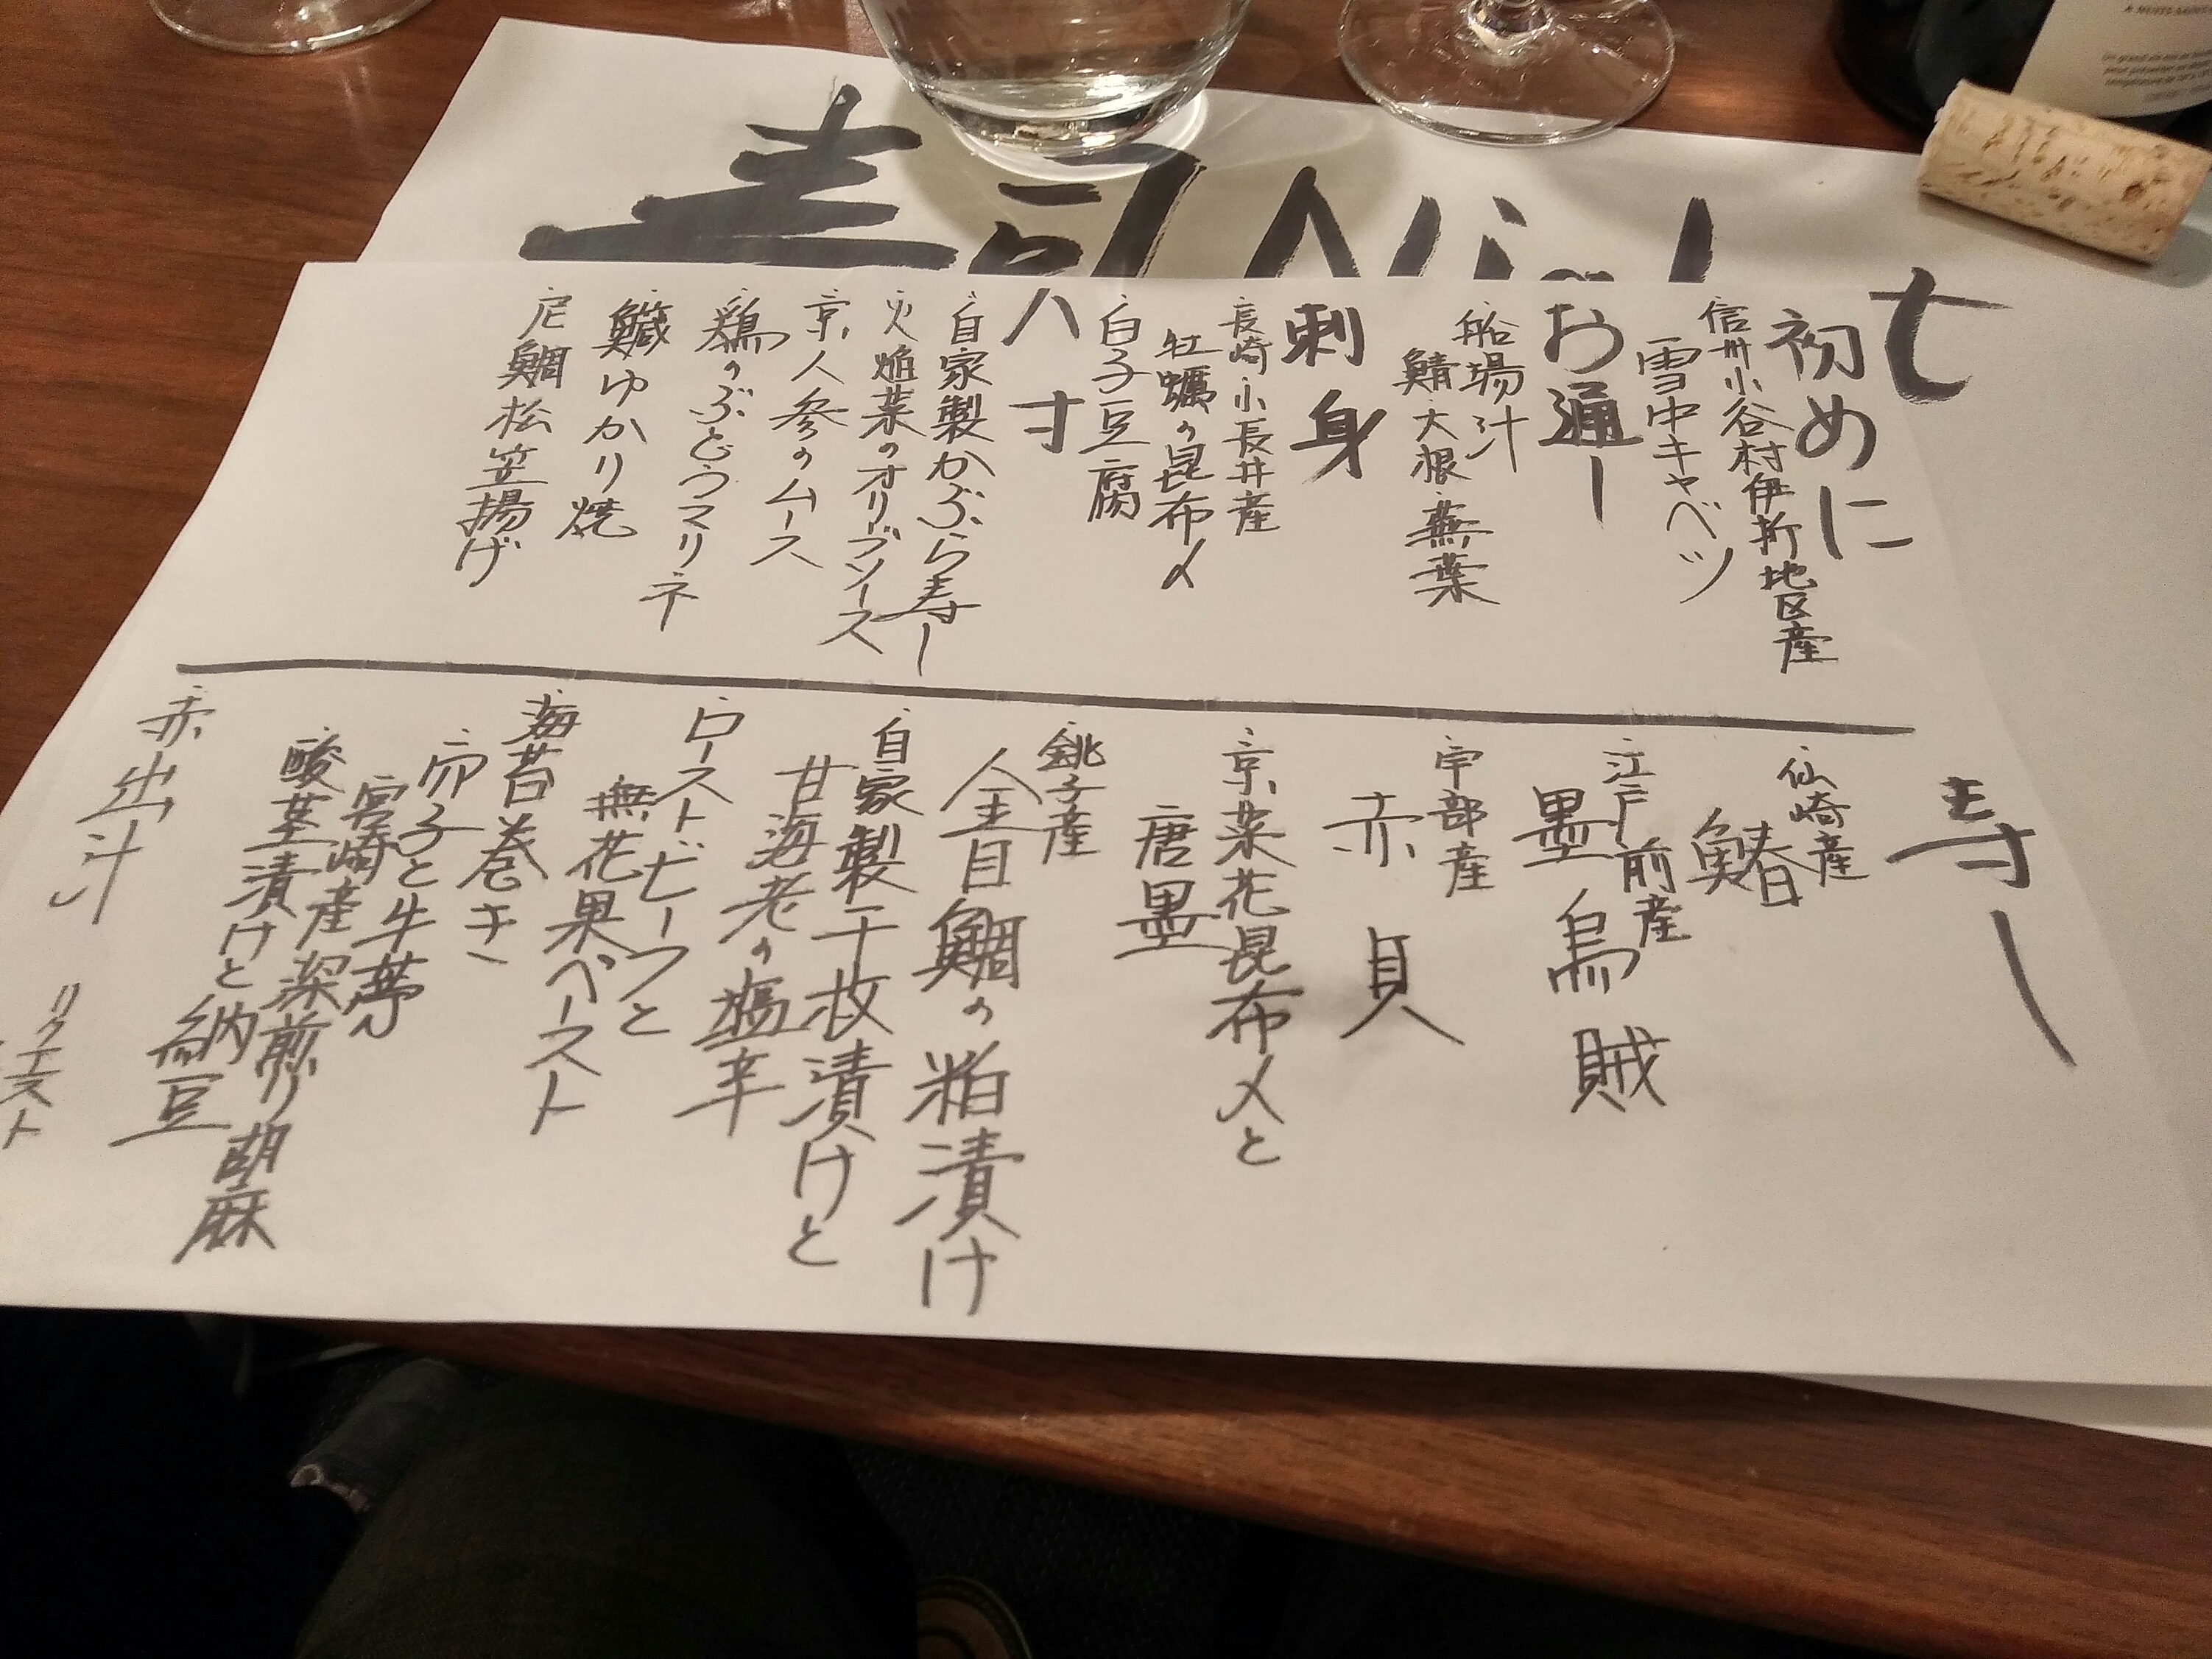 七
初めに
信州小谷村伊折地区産
雪中キャベツ
お通し
船場汁
鯖 大根 蕪 葉
刺身
長崎小長井産
牡蠣の昆布〆
白子豆腐
八寸
自家製かぶら寿し
火焔菜のオリーブソース
京人参のムース
鶏のぶどうマリネ
鰄ゆかり焼
尼鯛松笠揚げ
寿し
仙崎産
鰆
江戸前産
墨烏賊
宇部産
赤貝
京菜花昆布〆と
唐墨
銚子産
金目鯛の粕漬け
自家製千枚漬けと
甘海老の塩辛
ローストビーフと
無花果ペースト
海苔巻き
卵子と牛蒡
宮崎産深煎り胡麻
酸茎漬けと納豆
赤出汁
リクエスト